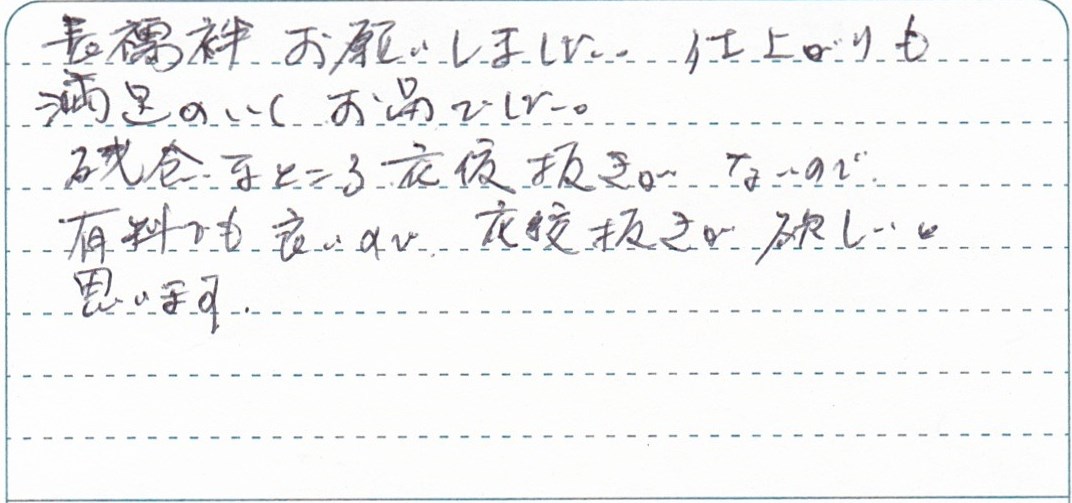 長襦袢 お願いしました。 仕上がりも
満足のいく お品でした。
残念なところ 衣紋抜きが ないので
有料でも良いので、衣紋抜きが 欲しいと
思います。